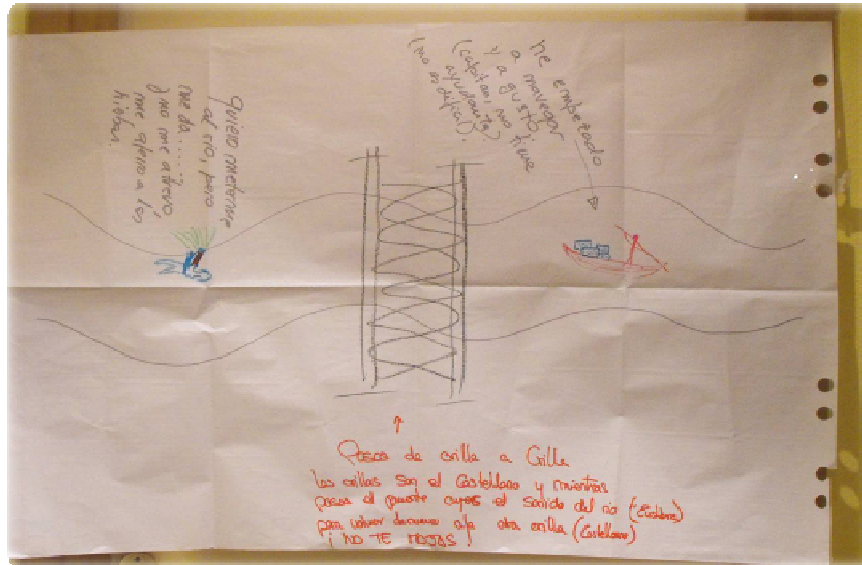 Quiero meterme
al río, pero
me da.....?
¡no me atrevo,
me aferro a las
hierbas.
he empezado
a navegar
y a gusto.
(capitan, no tiene
ayudante)
(no es dificil).
Pasas de orilla a Orilla
las orillas son el Castellano y mientras
pasas el puente oyes el sonido del rio (Euskara)
para volver de nuevo a la otra orilla (Castellano)
¡ NO TE MOJAS !